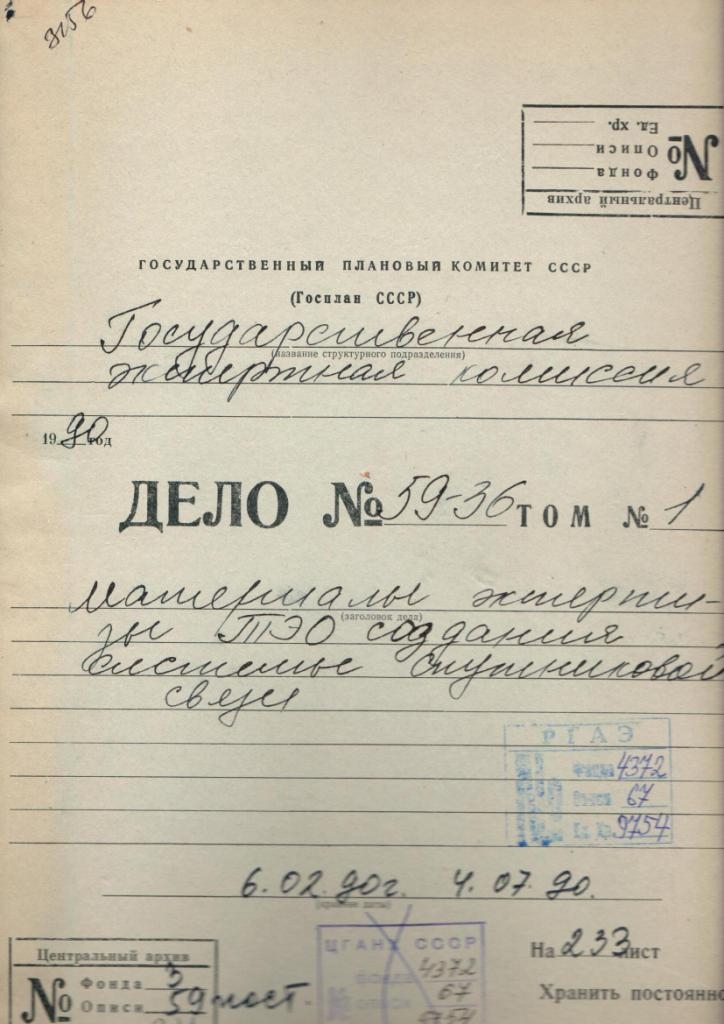 Центральный архив
№
Фонда
Описи
Ед. хр.
ГОСУДАРСТВЕННЫЙ ПЛАНОВЫЙ КОМИТЕТ СССР
(Госплан СССР)
Государственная
(название структурного подразделения)
экспертная комиссия
1990 год
ДЕЛО № 59-36 ТОМ № 1
Материалы эксперти-
(заголовок дела)
зы ТЭО создания
системы спутниковой
связи
РГАЭ
Фонд 4372
Опись 67
Ед. Хр. 9754
6.02.90г. 4.07.90.
(крайние даты)
Центральный архив
№
Фонда 3
Описи 59 пост.
ЦГАНХ СССР
фонд 4372
№ описи 67
9754
На 233 лист
Хранить постоянно